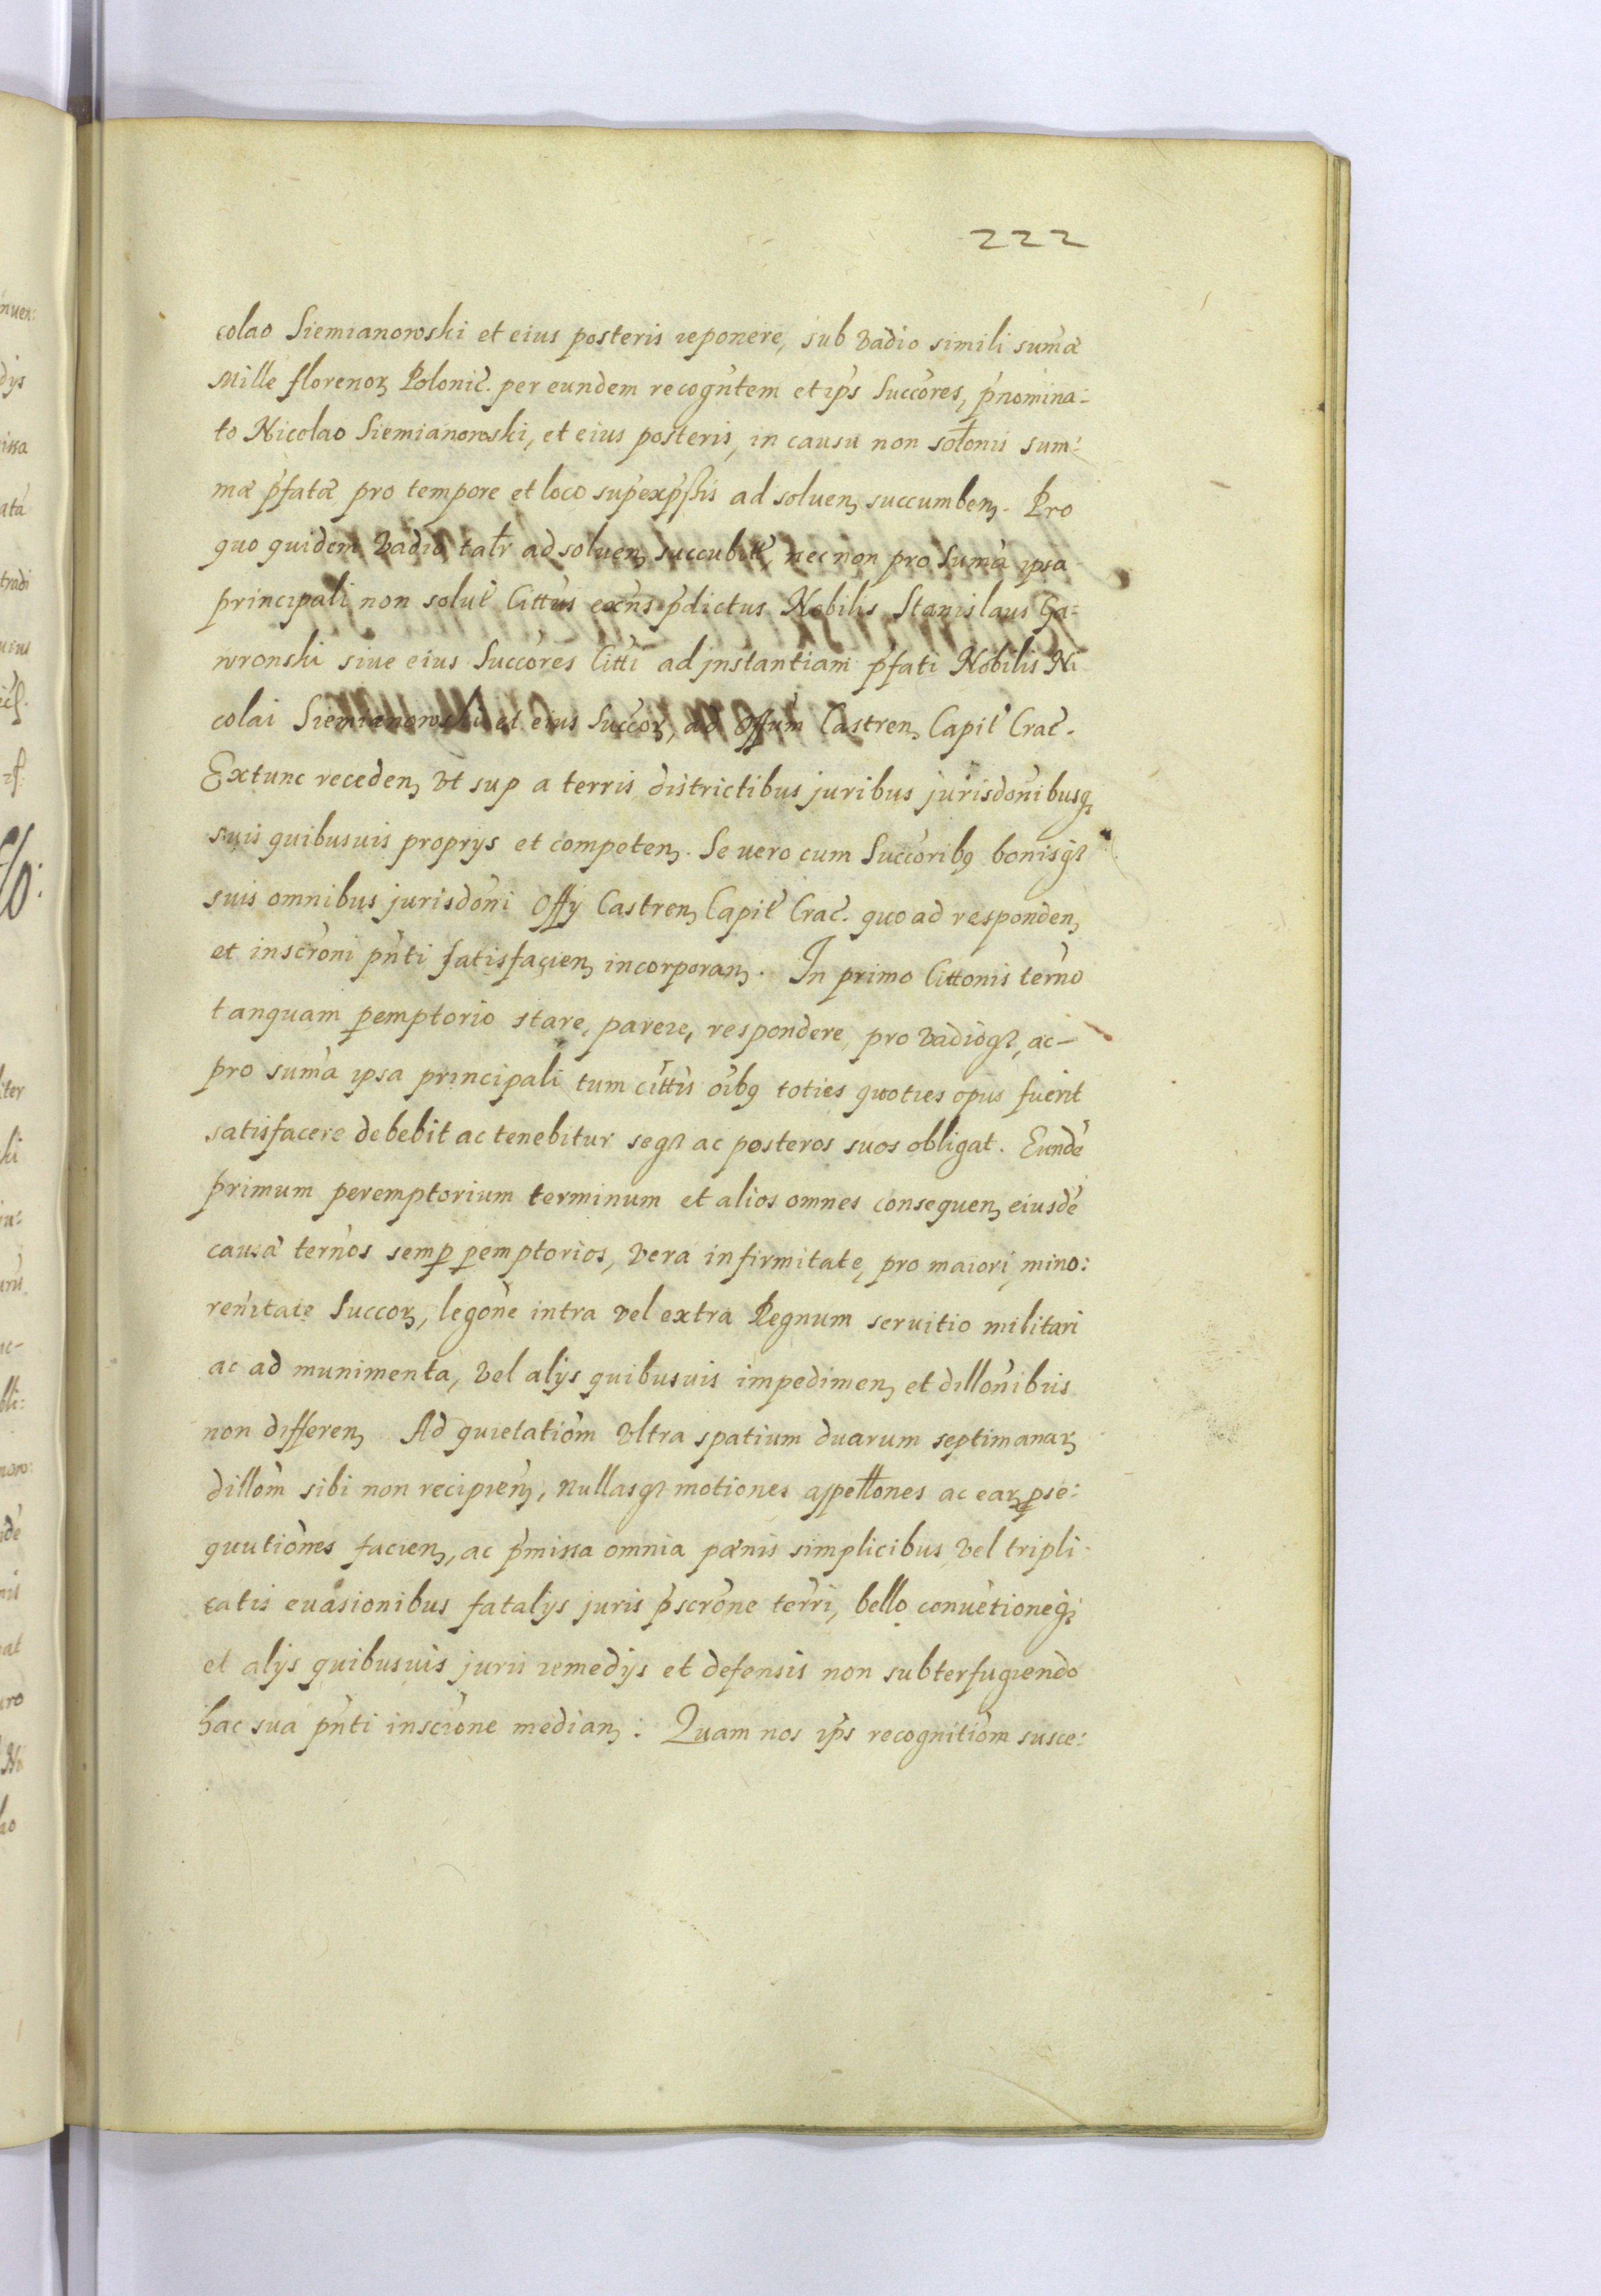 222
colao Siemianowski et eius posteris reponere, sub vadio simili sum̃æ
Mille florenoꝝ Polonic̃. per eundem recogn̄tem et ip̄s Succ̄ores, p̄nomina:
to Nicolao Siemianowski, et eius posteris, in causu non sol̄onis sum:
mæ p̄fatæ pro tempore et loco sup̄exp̄ssis ad soluenꝫ succumbenꝫ. Pro
quo quidem vadio tal̄r ad soluenꝫ succubit̄, nec non pro Sum̄a ipsa
principali non solut̄ Citt̄us exn̄s p̄dictus Nobilis Stanislaus Ga=
wronski siue eius Succ̄ores Citt̄i ad jnstantiam p̄fati Nobilis Ni
colai Siemianowski et eius Succ̄oꝝ, ad Off̄um Castrenꝫ Capit̄ Crac̄.
Extunc recedenꝫ vt sup a terris districtibus juribus jurisdon̄ibusqꝫ
suis quibusuis proprys et competenꝫ. Se uero cum Succ̄oribꝯ bonisqꝫ
suis omnibus jurisdon̄i Offy Castrenꝫ Capit̄ Crac̄. quo ad respondenꝫ
et inscr̄oni pn̄ti satisfacienꝫ incorporanꝫ. In primo Citt̄onis ter̄no
tanquam ꝑemptorio stare, parere, respondere, pro vadioqꝫ, ac–
pro sum̄a ipsa principali tum citt̄is oib̄ꝯ toties quoties opus fuerit
satisfacere debebit ac tenebitur seqꝫ ac posteros suos obligat. Eundē
primum peremptorium terminum et alios omnes consequenꝫ eiusdē
causæ ter̄nos semꝑ ꝑemptorios, vera infirmitate, pro maiori, mino:
ren̄itate Succoꝝ, legōne intra vel extra Regnum seruitio militari
ac ad munimenta, vel alys quibusuis impedimenꝫ et dillōnibus
non differenꝫ Ad quietatiōm vltra spatium duarum septimanaꝝ
dillōm sibi non recipienꝫ, nullasqꝫ motiones appellōnes ac eaꝝ ꝓse:
quutiōnes facienꝫ, ac p̄missa omnia pœnis simplicibus vel tripli:
catis euasionibus fatalys juris p̄scrōne ter̄ri, bello conuētioneqꝫ
et alys quibusuis juris remedys et defensis non subterfugiendo
hac sua pn̄ti inscrīone medianꝫ: Quam nos ip̄s recognitiōm susce: